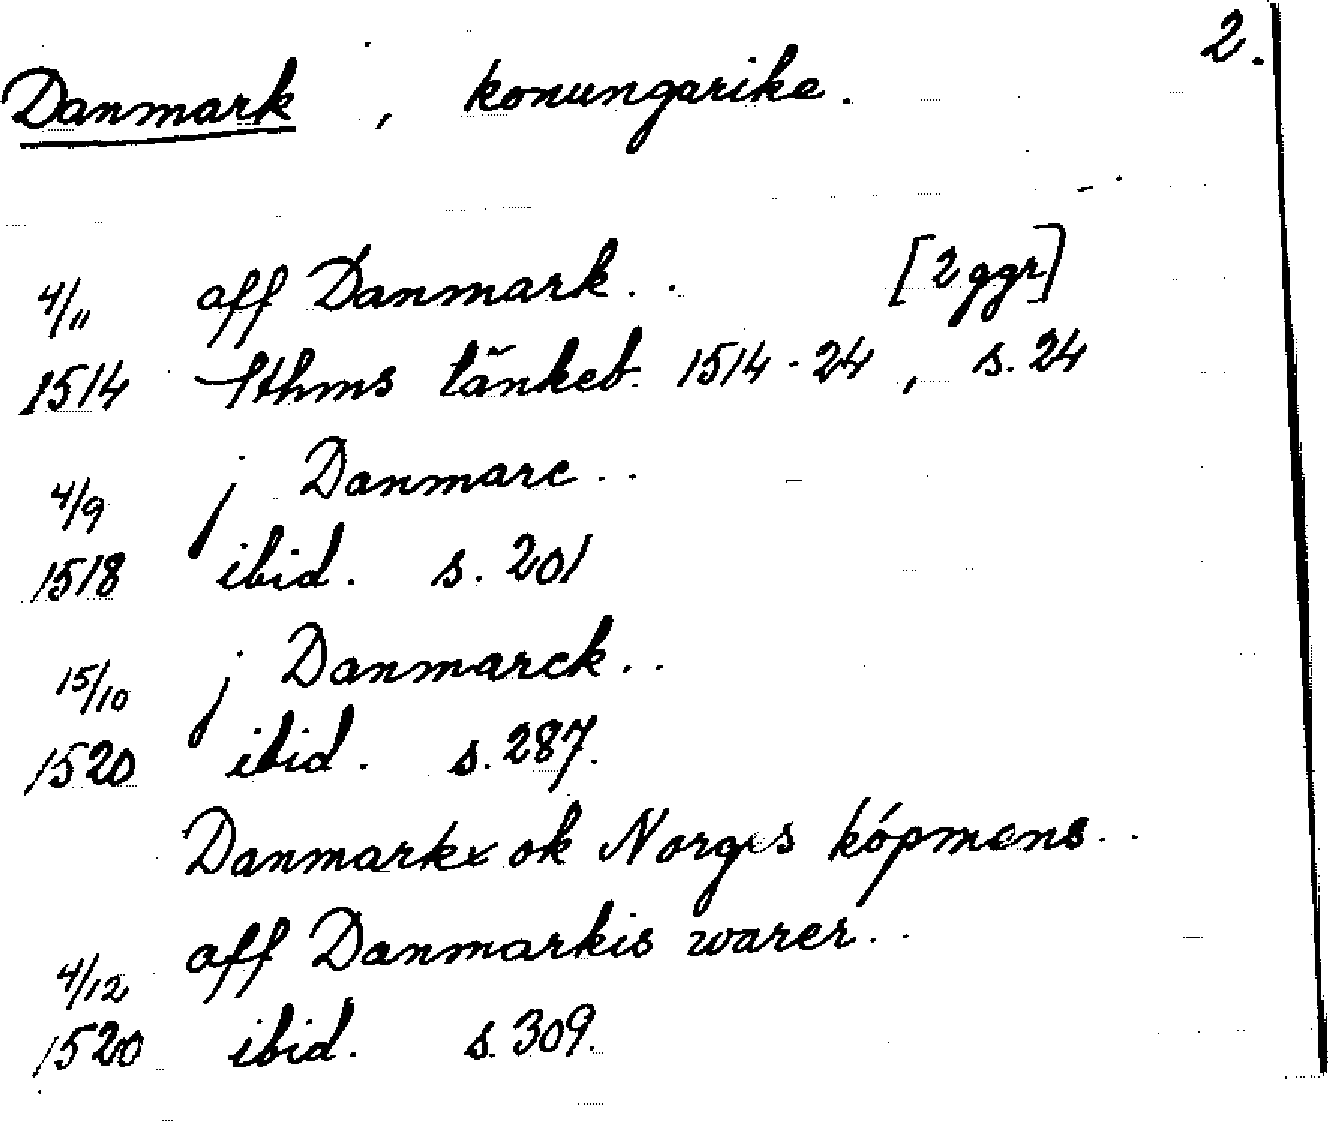 2.
Danmark, konungarike.
4/11 aff Danmark.. [2 ggr]
1514 Sthms tänkeb. 1514-24, s. 24
4/9 j Danmarc..
1518 ibid. s. 201
15/10 j Danmarck..
1520 ibid. s. 287.
Danmarkx ok Norges köpmens..
4/12 aff Danmarkis warer..
1520 ibid. s. 309.